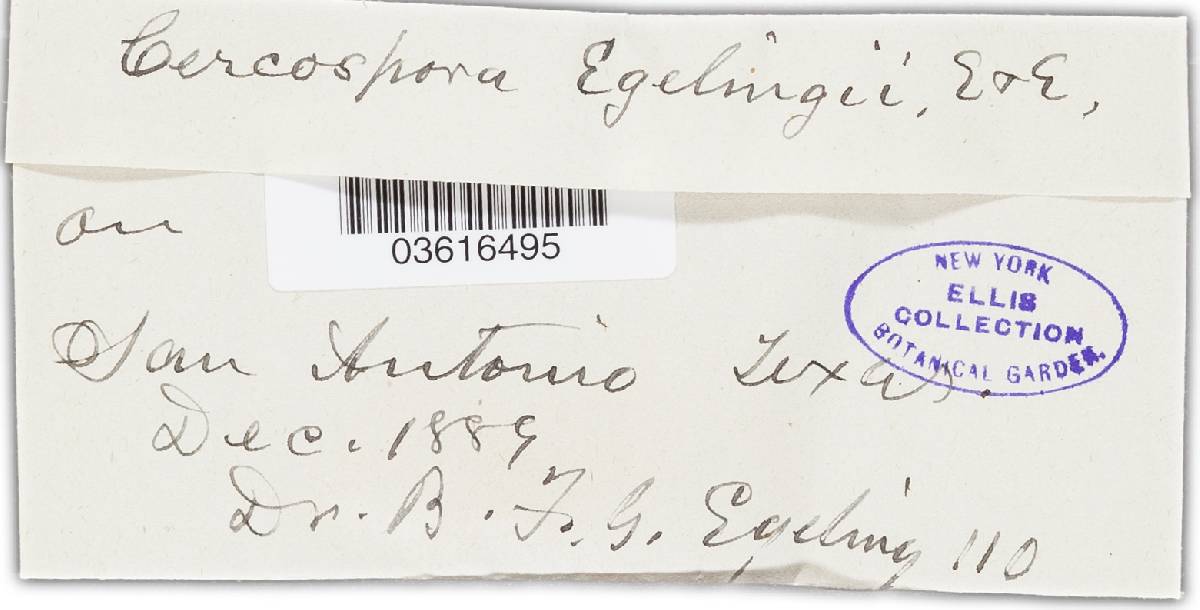 Cercospora Egelingii, E&E,
on
03616495
NEW YORK
ELLIS
COLLECTION
BOTANICAL GARDEN.
San Antonio Texas.
Dec. 1889
Dr. B. F. G. Egeling 110